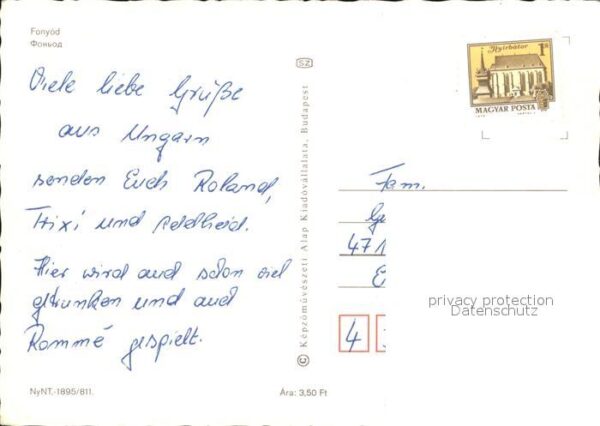 Fonyód
Фоньод
Viele liebe Grüße
aus Ungarn
senden Euch Roland,
Trixi und
Hier wird auch schon viel
getrunken und auch
Rommé gespielt.
NyNT.-1895/811.
Ára: 3,50 Ft
SZ
© Képzőművészeti Alap Kiadóvállalata, Budapest
Nyírbátor
1 Ft
MAGYAR POSTA
Fam.
47
E
4
privacy protection
Datenschutz